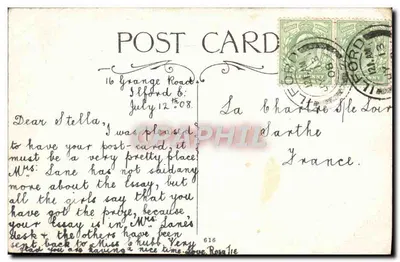 POST CARD
16 Grange Road
Ilford E.
July 12th 08.
Dear Stella,
I was pleased
to have your post-card, it
must be a very pretty place.
Mrs. Lane has not said any
more about the Essay, but
all the girls say that you
have got the prize, because
your Essay is in Mrs. Lane's
desk & the others have been
sent back to Miss Chubb. Very
glad you are having a nice time. Love, Rosalie
La Chartre S/le Loir
Sarthe
France.
616
ILFORD
ILFORD